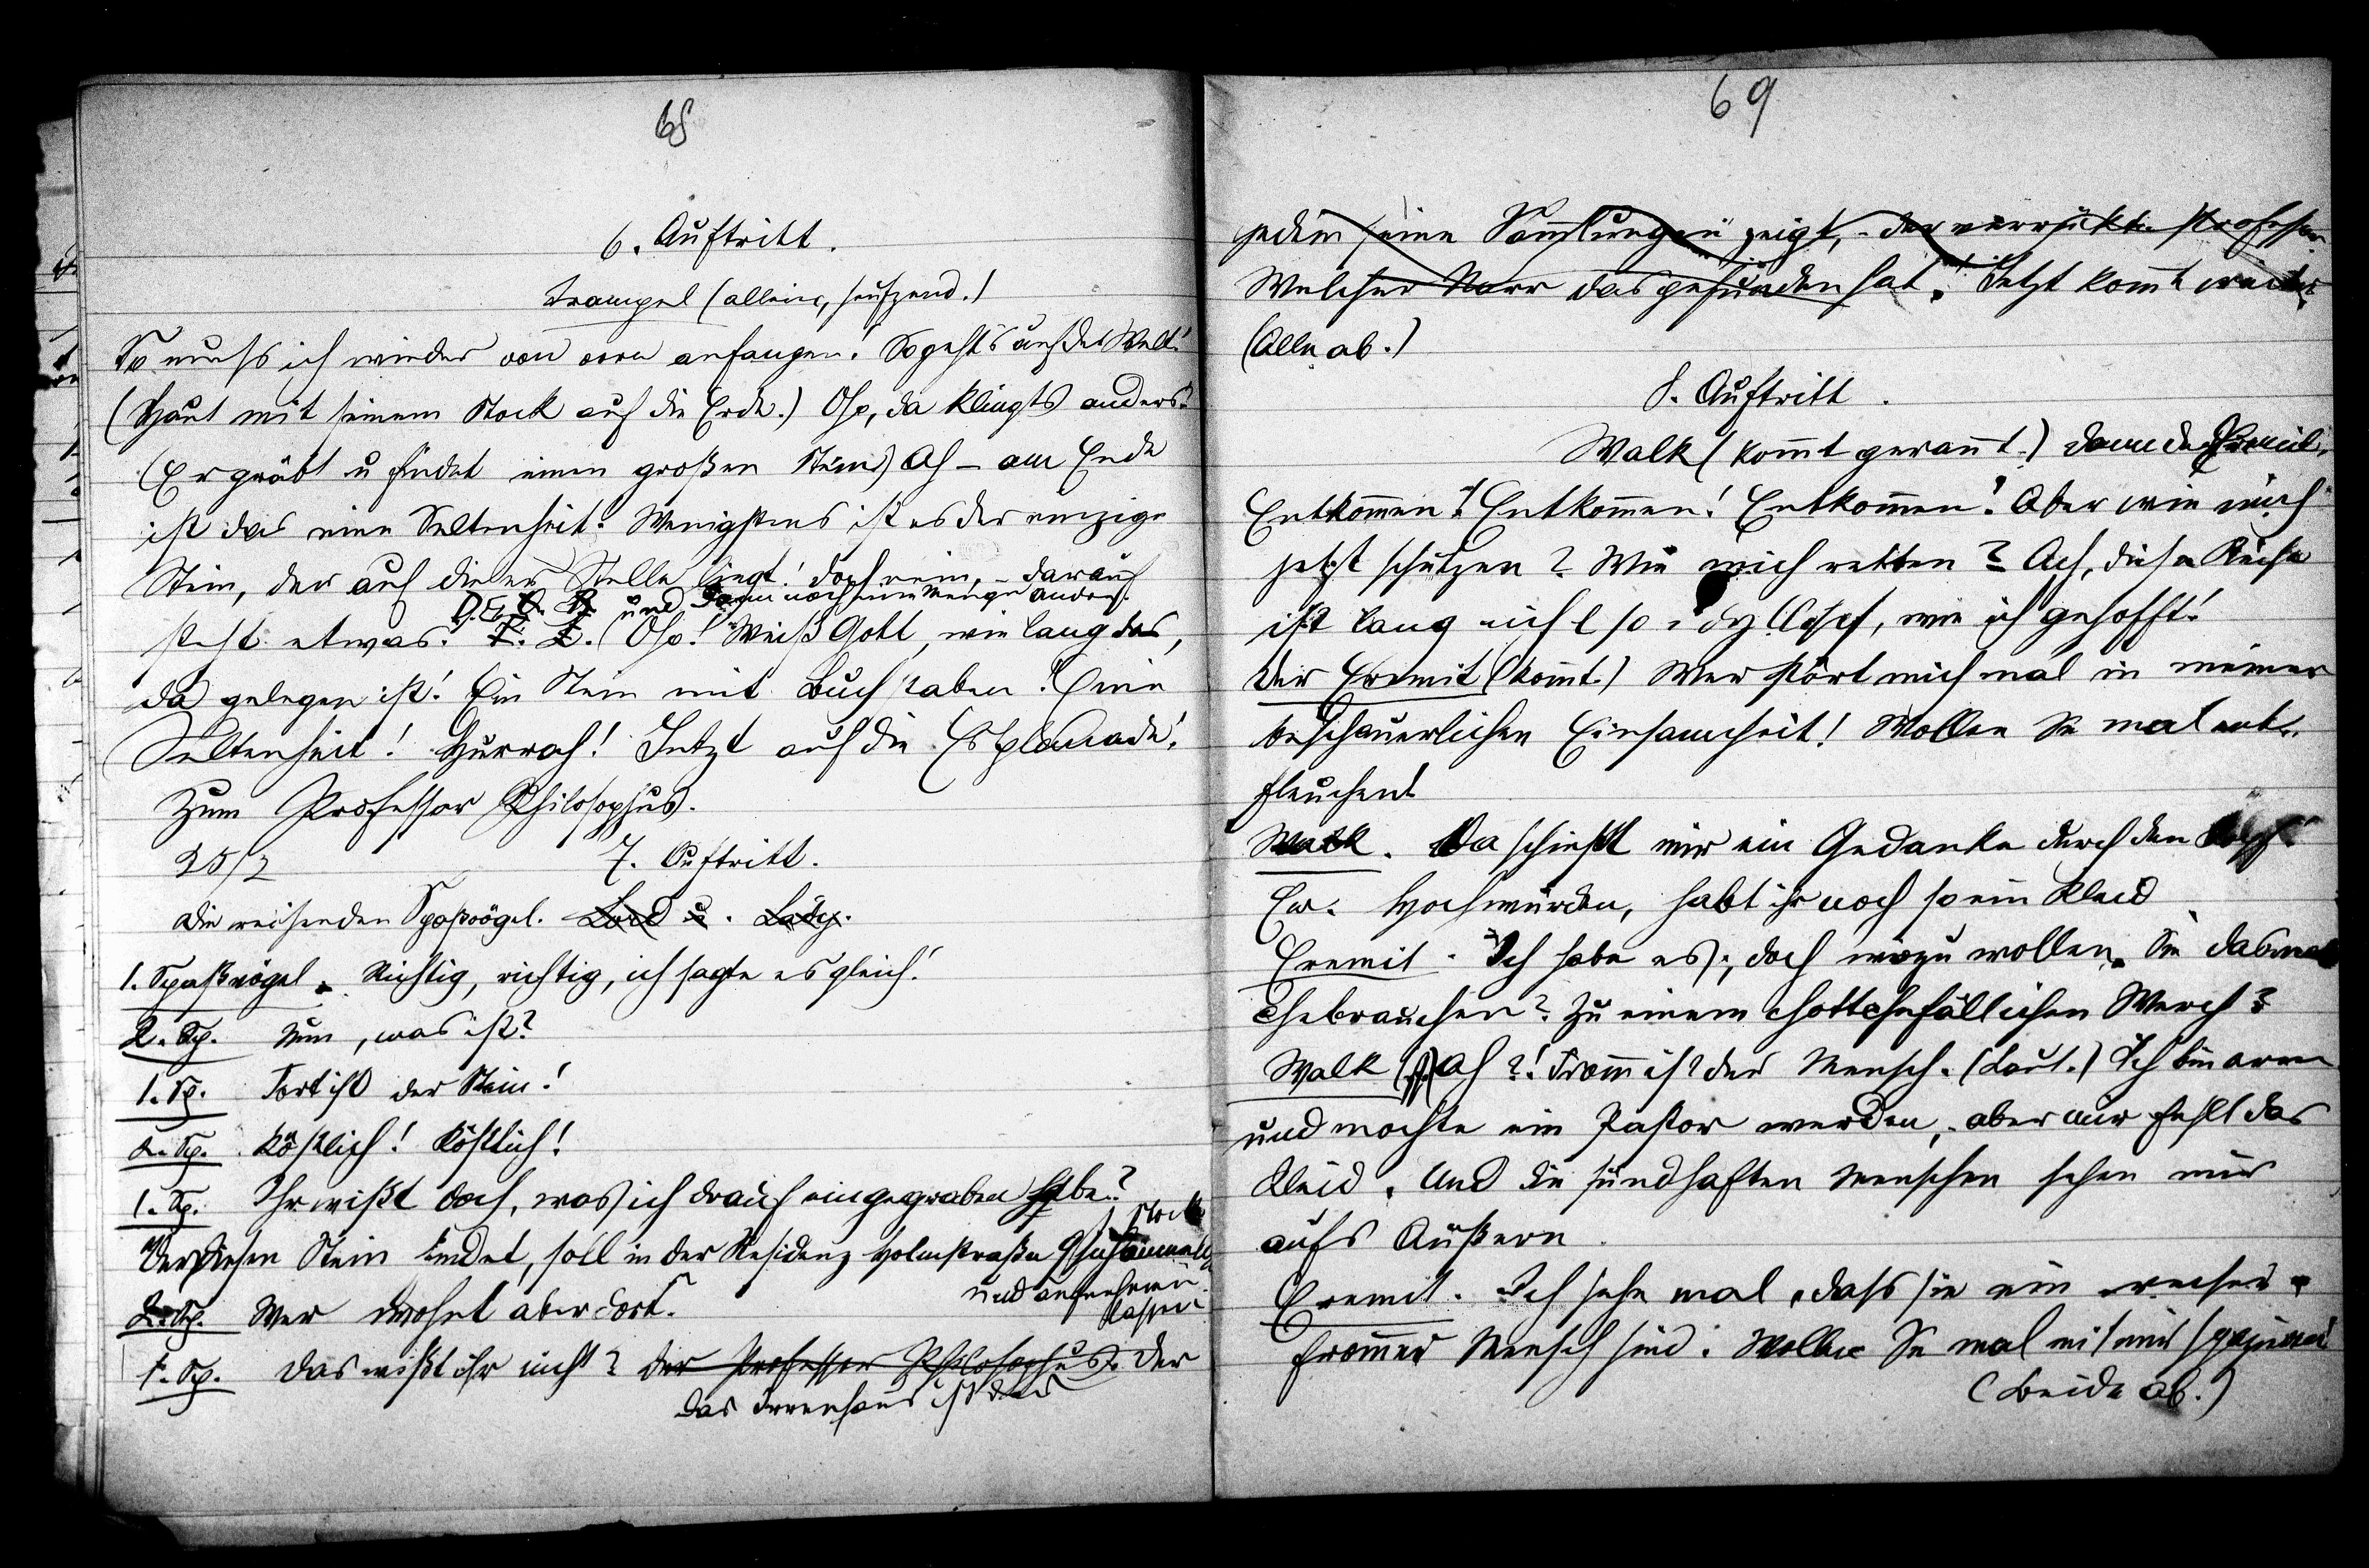 68
6. Auftritt.
Trampel (allein, seufzend.)
So muss ich wieder von vorn anfangen! So gehts auf der Welt!
(Haut mit seinem Stock auf die Erde.) Oho, da klingts anders.
(Er gräbt u findet einen großen Stein) Ah – am Ende
ist das eine Seltenheit. Wenigstens ist es der einzige
Stein, der auf dieser Stelle liegt! Doch nein, – darauf
und dann noch eine Menge andere.
steht etwas. Oho! Weiß Gott, wie lang das,
da gelegen ist! Ein Stein mit Buchstaben! Eine
Seltenheit! Hurrah! Jetzt auf die Esplanade!
Zum Professor Philosophus.
25/2 7. Auftritt.
Die reisenden Spaßvögel. Lord u. Lady.
1. Spaßvögel. Richtig, richtig, ich sagte es gleich!
2. Sp. Nun, was ist?
1. Sp. Fort ist der Stein!
2. Sp. Köstlich! Köstlich!
1. Sp. Ihr wißt doch, was ich drauf eingegraben habe?
Wer diesen Stein findet, soll in der Residenz Holmstraße 9
Stock
und
lassen
2. Sp. Wer wohnt aber dort.
1. Sp. Das wißt ihr nicht? Der Professor Philosophus. Der
Das Irrenhaus ist
69
jedem seine Sammlungen zeigt, – der verrückte Professor
Welcher Narr das gefunden hat. Jetzt kommt weiter.
(Alle ab.)
8. Auftritt.
Walk (kommt gerannt.) Dann der Eremit.
Entkommen! Entkommen! Entkommen! Aber wie mich
jetzt schützen? Wie mich retten? Ach, diese Reise
ist lang nicht so idyllisch, wie ich gehofft!
Der Eremit (kommt.) Wer stört mich mal in meiner
beschauerlichen Einsamcheit! Wollen Sie mal ent-
fleuchen!
Walk. Da schießt mir ein Gedanke durch den Kopf.
Ew. Hochwürden, habt ihr noch so ein Kleid
Eremit. Ich habe es, doch wozu wollen Sie das mal
chebrauchen? Zu einem chottchefällichen Werch?
Walk Ah?! Fromm ist der Mensch. (Laut.) Ich bin arm
und mochte ein Pastor werden, aber mir fehlt das
Kleid. Und die sündhaften Menschen sehen nur
aufs Äußere.
Eremit. Ich sehe mal, dass sie ein
frommer Mensch sind. Wollen Sie mal mit mir spazieren
(Beide ab.)